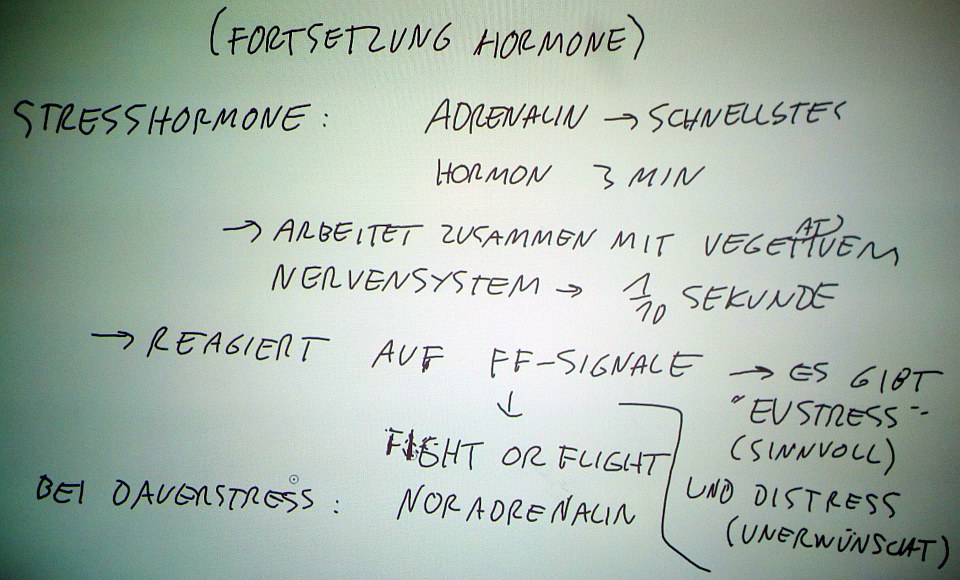 (FORTSETZUNG HORMONE)
STRESSHORMONE: ADRENALIN → SCHNELLSTES
HORMON 3 MIN
→ ARBEITET ZUSAMMEN MIT VEGETATIVEM
NERVENSYSTEM → 1/10 SEKUNDE
→ REAGIERT AUF FF-SIGNALE
↓
FIGHT OR FLIGHT
→ ES GIBT
"EUSTRESS"
(SINNVOLL)
UND DISTRESS
(UNERWÜNSCHT)
BEI DAUERSTRESS: NORADRENALIN